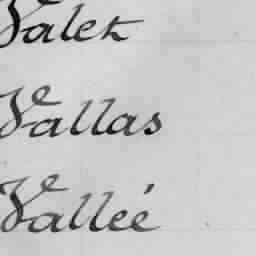 Valet
Vallas
Vallée